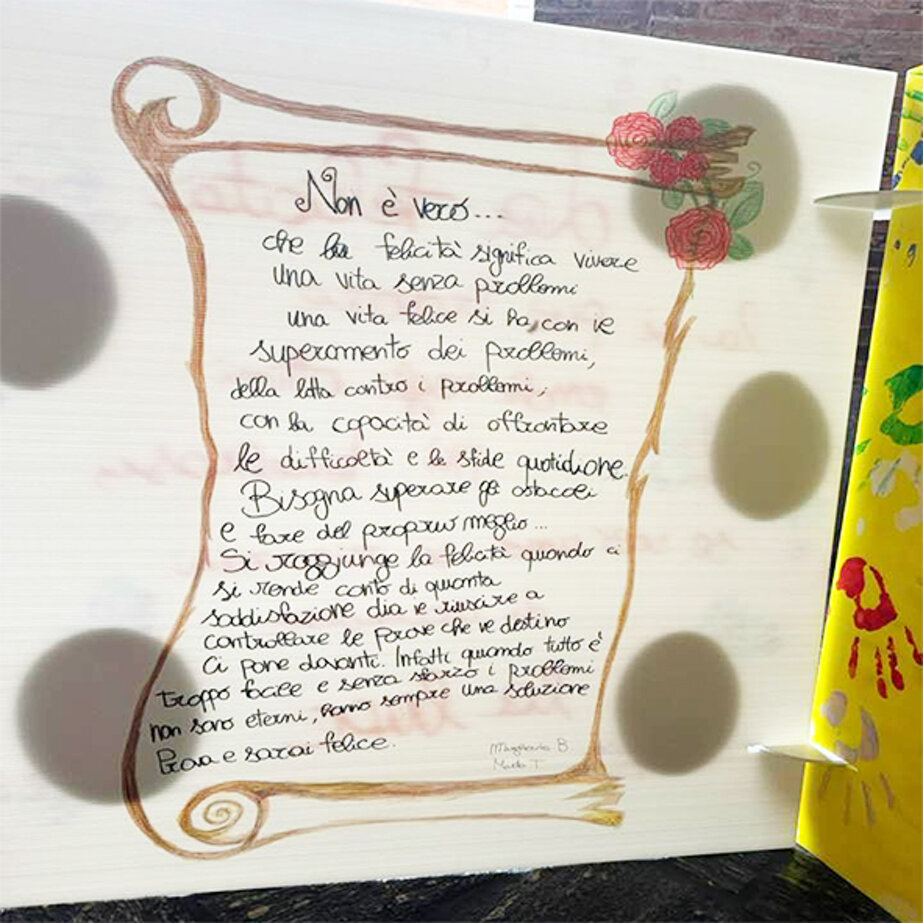 Non è vero...
che la felicità significa vivere
una vita senza problemi
una vita felice si ha, con il
superamento dei problemi,
della lotta contro i problemi,
con la capacità di affrontare
le difficoltà e le sfide quotidiane.
Bisogna superare gli ostacoli
e fare del proprio meglio...
Si raggiunge la felicità quando ci
si rende conto di quanta
soddisfazione dia il riuscire a
controllare le prove che il destino
ci pone davanti. Infatti quando tutto è
troppo facile e senza sforzo i problemi
non sono eterni, hanno sempre una soluzione
Prova e sarai felice.
Margherita B.
Marta T.